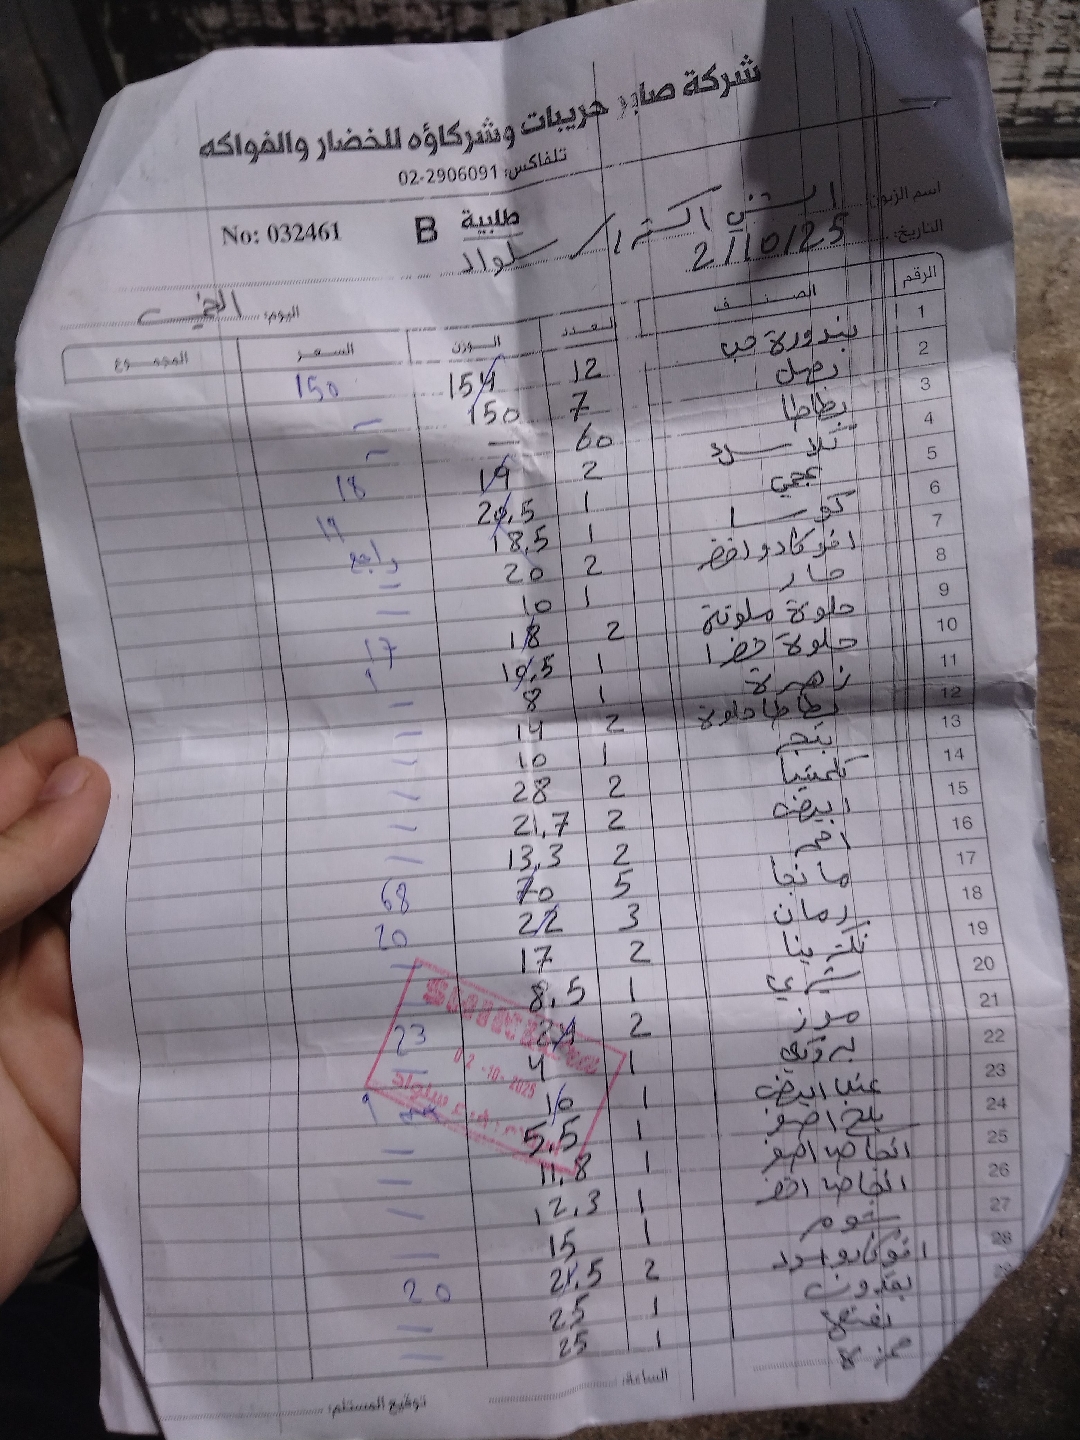 شركة صابر حريبات وشركاؤه للخضار والفواكه
تلفاكس: 02-2906091
No: 032461 B طلبية
اسم الزبون: السني اكسترا / سلواد
التاريخ: 2/10/25
اليوم: الخميس
الرقم الصنف العدد الوزن السعر المجموع
1 بندورة حب 12 154 150
2 بصل 7 150 –
3 بطاطا 60 – –
4 2 19 18
5 1 20,5 19
6 كوسا 1 18,5 راجع
7 افوكادو اخضر 2 20 –
8 حار 1 10 –
9 حلوة ملونة 2 18 17
10 حلوة خضرا 1 10,5 9
11 زهرة 1 8 –
12 بطاطا حلوة 2 14 –
13 1 10 –
14 كلمنتينا 2 28 –
15 ابيض 2 21,7 –
16 احمر 2 13,3 –
17 مانجا 5 70 68
18 رمان 3 22 20
19 نكترينا 2 17 –
20 1 8,5 –
21 موز 2 24 23
22 1 4 –
23 عنب ابيض 1 10 9
24 بلح اصفر 1 5,5 –
25 اصفر 1 11,8 –
26 اخضر 1 12,3 –
27 ثوم 1 15 –
28 افوكادو اسود 2 21,5 20
بقدونس 1 25 –
نعنع 1 25 –
02 -10- 2025
الساعة:
توقيع المستلم: